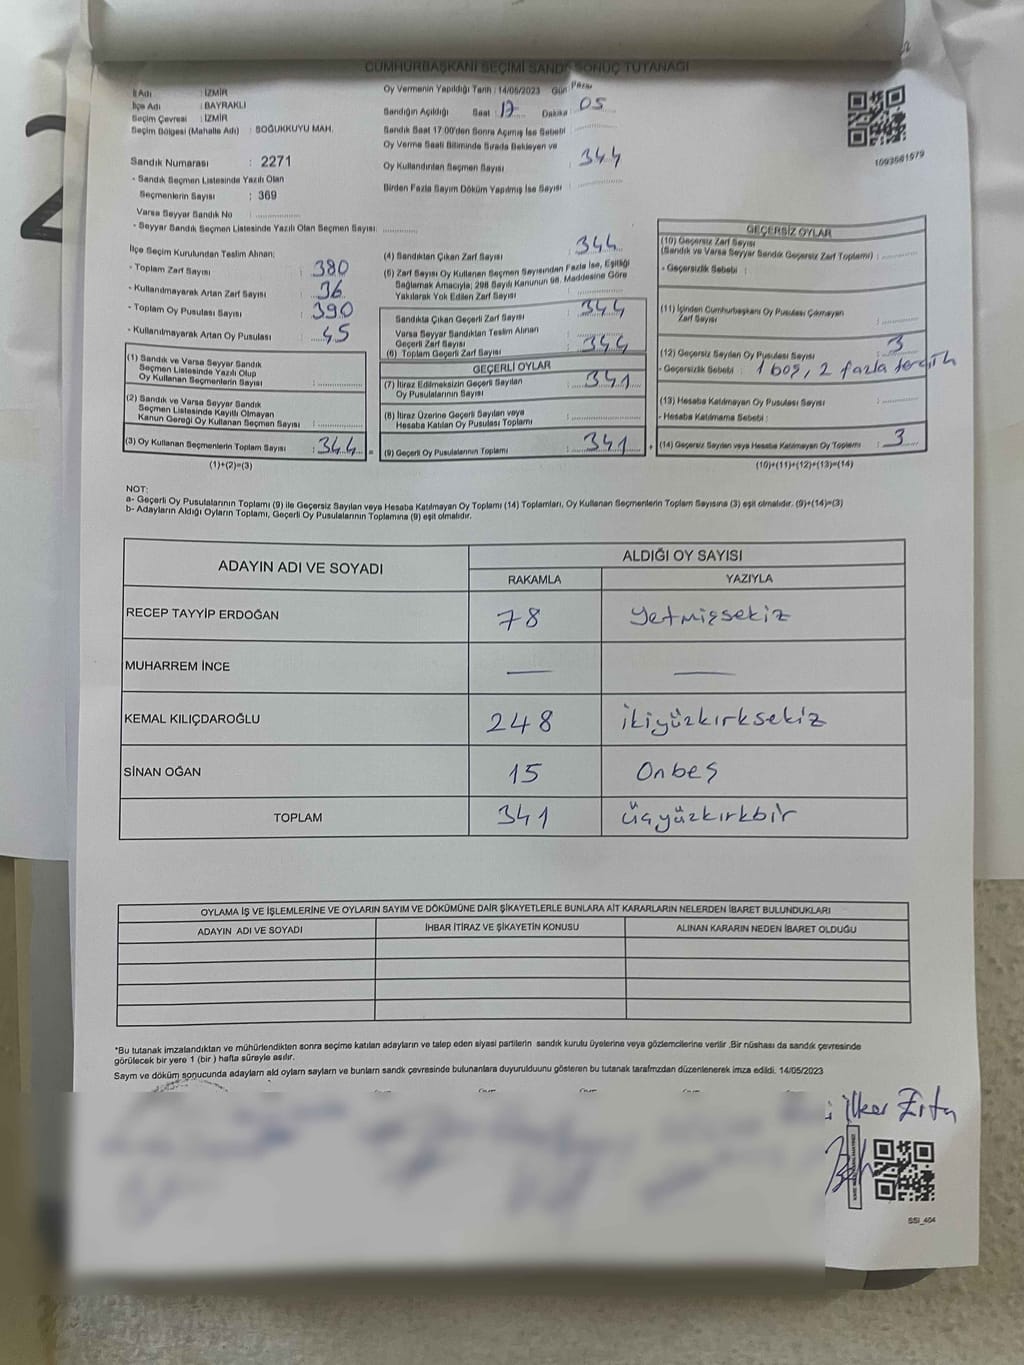 CUMHURBAŞKANI SEÇİMİ SANDIK SONUÇ TUTANAĞI
İl Adı : İZMİR
İlçe Adı : BAYRAKLI
Seçim Çevresi : İZMİR
Seçim Bölgesi (Mahalle Adı) : SOĞUKKUYU MAH.
Sandık Numarası : 2271
- Sandık Seçmen Listesinde Yazılı Olan
Seçmenlerin Sayısı : 369
Varsa Seyyar Sandık No : ..................
- Seyyar Sandık Seçmen Listesinde Yazılı Olan Seçmen Sayısı: ..............
Oy Vermenin Yapıldığı Tarih : 14/05/2023 Gün Pazar
Sandığın Açıldığı Saat : 17 Dakika : 05
Sandık Saat 17:00'den Sonra Açımış İse Sebebi : ..............
Oy Verme Saati Bitiminde Sırada Bekleyen ve
Oy Kullandırılan Seçmen Sayısı : 344
Birden Fazla Sayım Döküm Yapılmış İse Sayısı : ..............
1093561979
İlçe Seçim Kurulundan Teslim Alınan;
- Toplam Zarf Sayısı : 380
- Kullanılmayarak Artan Zarf Sayısı : 36
- Toplam Oy Pusulası Sayısı : 390
- Kullanılmayarak Artan Oy Pusulası : 45
(1) Sandık ve Varsa Seyyar Sandık
Seçmen Listesinde Yazılı Olup
Oy Kullanan Seçmenlerin Sayısı : ..............
(2) Sandık ve Varsa Seyyar Sandık
Seçmen Listesinde Kayıtlı Olmayan
Kanun Gereği Oy Kullanan Seçmen Sayısı : ..............
(3) Oy Kullanan Seçmenlerin Toplam Sayısı : 344 =
(1)+(2)=(3)
(4) Sandıktan Çıkan Zarf Sayısı : 344
(5) Zarf Sayısı Oy Kullanan Seçmen Sayısından Fazla İse, Eşitliği
Sağlamak Amacıyla; 298 Sayılı Kanunun 98. Maddesine Göre
Yakılarak Yok Edilen Zarf Sayısı : ..............
Sandıkta Çıkan Geçerli Zarf Sayısı : 344
Varsa Seyyar Sandıktan Teslim Alınan
Geçerli Zarf Sayısı : ..............
(6) Toplam Geçerli Zarf Sayısı : 344
GEÇERLİ OYLAR
(7) İtiraz Edilmeksizin Geçerli Sayılan
Oy Pusulasının Sayısı : 341
(8) İtiraz Üzerine Geçerli Sayılan veya
Hesaba Katılan Oy Pusulası Toplamı : ..............
(9) Geçerli Oy Pusulalarının Toplamı : 341 +
GEÇERSİZ OYLAR
(10) Geçersiz Zarf Sayısı
(Sandık ve Varsa Seyyar Sandık Geçersiz Zarf Toplamı) : ..........
- Geçersizlik Sebebi :
(11) İçinden Cumhurbaşkanı Oy Pusulası Çıkmayan
Zarf Sayısı : ..........
(12) Geçersiz Sayılan Oy Pusulası Sayısı : 3
- Geçersizlik Sebebi : 1 boş, 2 fazla tercih
(13) Hesaba Katılmayan Oy Pusulası Sayısı : ..........
- Hesaba Katılmama Sebebi :
(14) Geçersiz Sayılan veya Hesaba Katılmayan Oy Toplamı : 3
(10)+(11)+(12)+(13)=(14)
NOT:
a- Geçerli Oy Pusulalarının Toplamı (9) ile Geçersiz Sayılan veya Hesaba Katılmayan Oy Toplamı (14) Toplamları, Oy Kullanan Seçmenlerin Toplam Sayısına (3) eşit olmalıdır. (9)+(14)=(3)
b- Adayların Aldığı Oyların Toplamı, Geçerli Oy Pusulalarının Toplamına (9) eşit olmalıdır.
ADAYIN ADI VE SOYADI
ALDIĞI OY SAYISI
RAKAMLA YAZIYLA
RECEP TAYYİP ERDOĞAN 78 Yetmişsekiz
MUHARREM İNCE — —
KEMAL KILIÇDAROĞLU 248 ikiyüzkırksekiz
SİNAN OĞAN 15 Onbeş
TOPLAM 341 üçyüzkırkbir
OYLAMA İŞ VE İŞLEMLERİNE VE OYLARIN SAYIM VE DÖKÜMÜNE DAİR ŞİKAYETLERLE BUNLARA AİT KARARLARIN NELERDEN İBARET BULUNDUKLARI
ADAYIN ADI VE SOYADI İHBAR İTİRAZ VE ŞİKAYETİN KONUSU ALINAN KARARIN NEDEN İBARET OLDUĞU
*Bu tutanak imzalandıktan ve mühürlendikten sonra seçime katılan adayların ve talep eden siyasi partilerin sandık kurulu üyelerine veya gözlemcilerine verilir .Bir nüshası da sandık çevresinde
görülecek bir yere 1 (bir ) hafta süreyle asılır.
Sayım ve döküm sonucunda adayların ald oyların sayların ve bunların sandk çevresinde bulunanlara duyurulduunu gösteren bu tutanak tarafımzdan düzenlenerek imza edildi. 14/05/2023
İlker
SSI_404